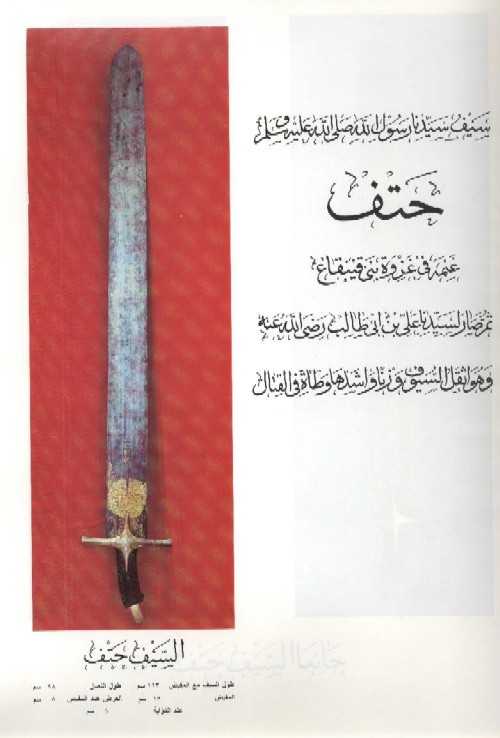 سيف سيدنا رسول الله صلى الله عليه وسلم
حتف
غنمه في غزوة بني قينقاع
ثم صار لسيدنا علي بن ابي طالب رضي الله عنه
وهو اثقل السيوف وزنا واشدها وطأة في القتال
السيف حتف
طول السيف مع المقبض ١١٣ سم طول النصل ٩٨ سم
المقبض ١٥ سم العرض عند المقبض ٨ سم
عند الذؤابة ٤ سم